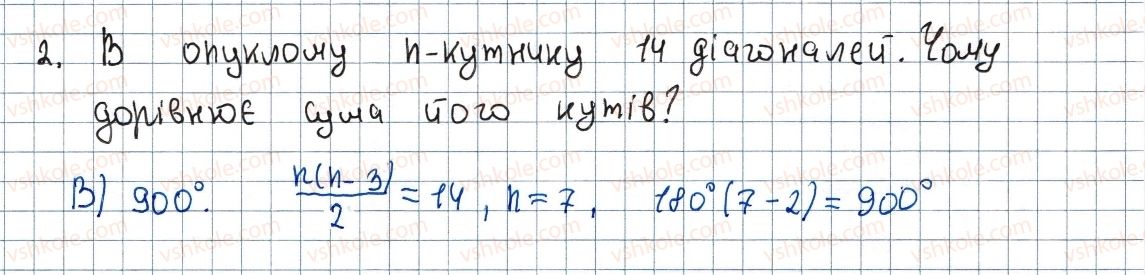 2. В опуклому n-кутнику 14 діагоналей. Чому
дорівнює сума його кутів?
В) 900°. n(n-3)/2 = 14, n = 7, 180°(7-2) = 900°